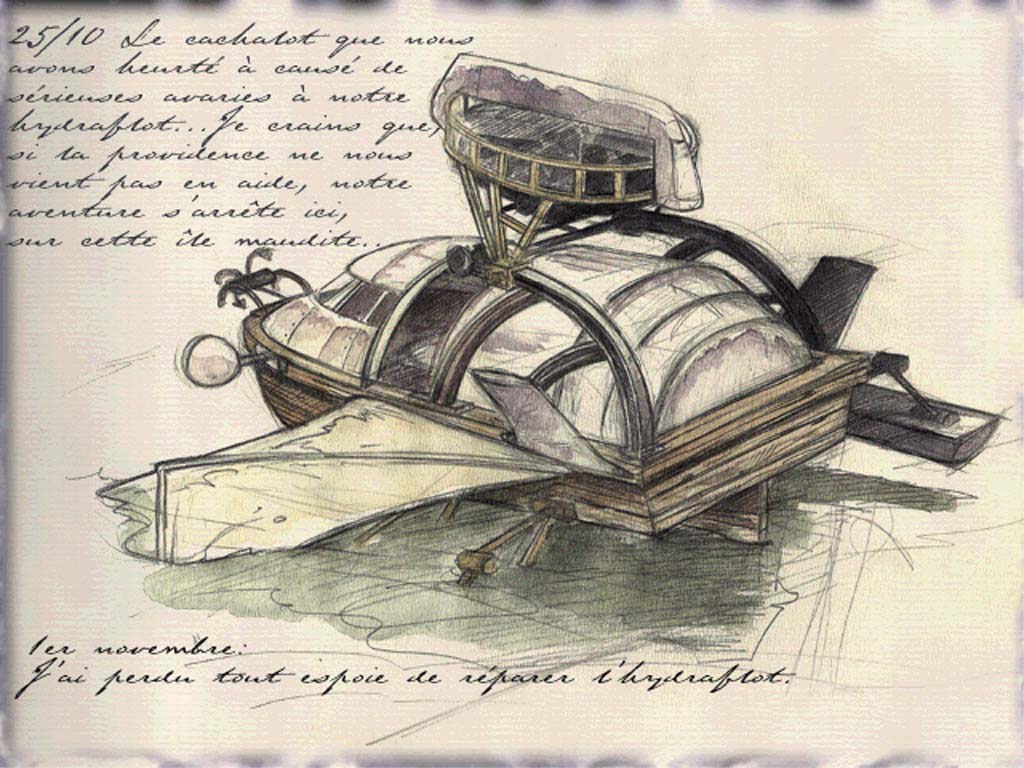 25/10 Le cachalot que nous
avons heurté à causé de
sérieuses avaries à notre
hydraflot... Je crains que,
si la providence ne nous
vient pas en aide, notre
aventure s'arrête ici,
sur cette île maudite..
1er novembre:
J'ai perdu tout espoie de réparer l'hydraflot.